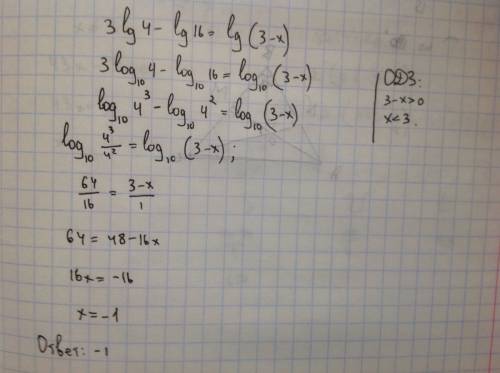 3 lg 4 - lg 16 = lg (3-x)
3 log₁₀ 4 - log₁₀ 16 = log₁₀ (3-x)
log₁₀ 4³ - log₁₀ 4² = log₁₀ (3-x)
log₁₀ 4³/4² = log₁₀ (3-x);
64/16 = 3-x/1
64 = 48-16x
16x = -16
x = -1
Ответ: -1
ОДЗ:
3-x>0
x<3.